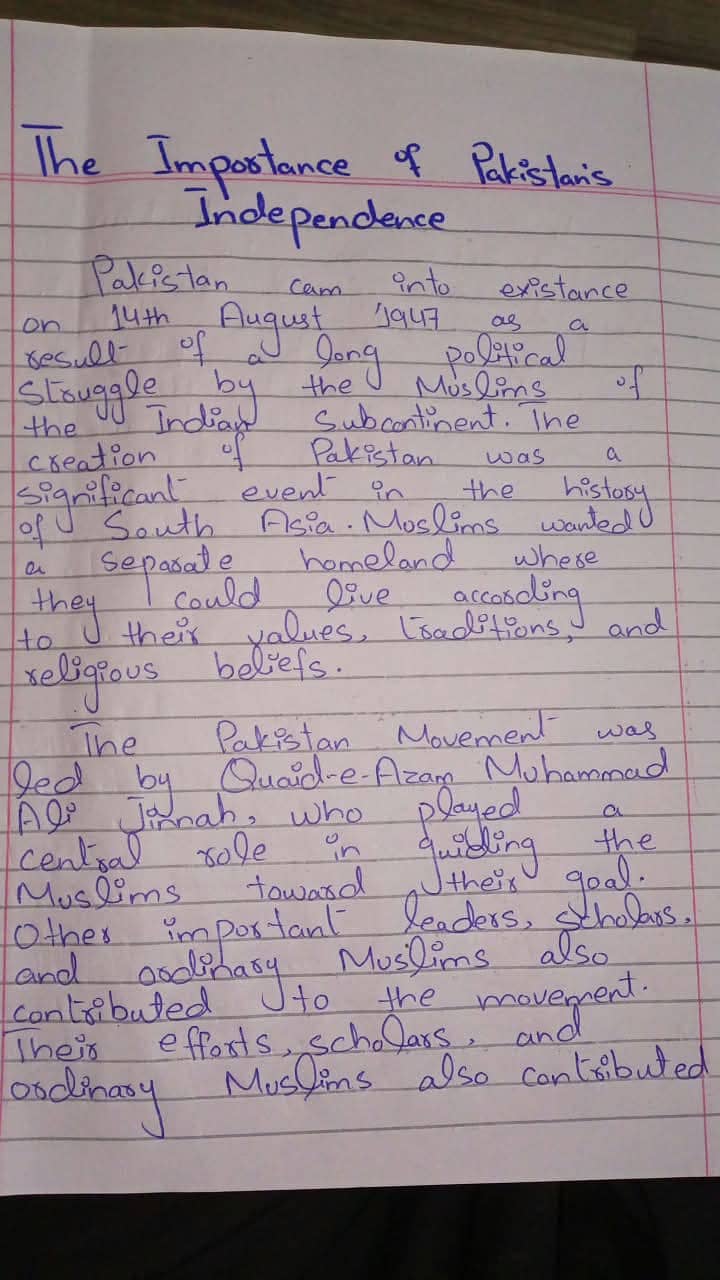 The Importance of Pakistan's
Independence
Pakistan cam into existance
on 14th August 1947 as a
result of a long political
struggle by the Muslims of
the Indian Subcontinent. The
creation of Pakistan was a
significant event in the history
of South Asia. Muslims wanted
a separate homeland where
they could live according
to their values, traditions, and
religious beliefs.
The Pakistan Movement was
led by Quaid-e-Azam Muhammad
Ali Jinnah, who played a
central role in guiding the
Muslims toward their goal.
Other important leaders, scholars,
and ordinary Muslims also
contributed to the movement.
Their efforts, scholars, and
ordinary Muslims also contributed